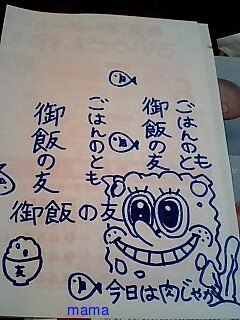 ごはんのとも
御飯の友
ごはんのとも
御飯の友
御飯の友
友
今日は肉じゃが
mama